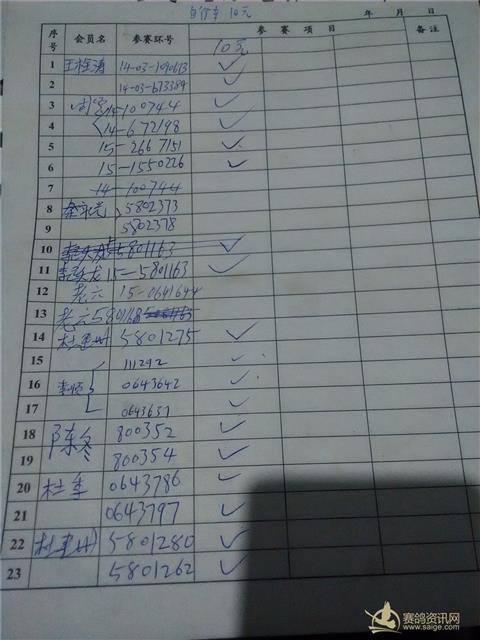 自行车 10元
年 月 日
序号 会员名 参赛环号 参赛项目 备注
10元
1 14-03-1090613 ✓
2 14-03-673389
3 15-100744 ✓
4 14-672198 ✓
5 15-2667151 ✓
6 15-1550226 ✓
7 14-100744
8 5802373
9 5802378
10 5801163 ✓
11 15-5801163 ✓
12 老六 15-0641644
13 老六 580168
14 5801275 ✓
15 111292 ✓
16 0643642 ✓
17 0643637 ✓
18 陈冬 800352 ✓
19 800354 ✓
20 杜军 0643786 ✓
21 0643797 ✓
22 5801280 ✓
23 5801262 ✓
赛鸽资讯网
www.saige.com